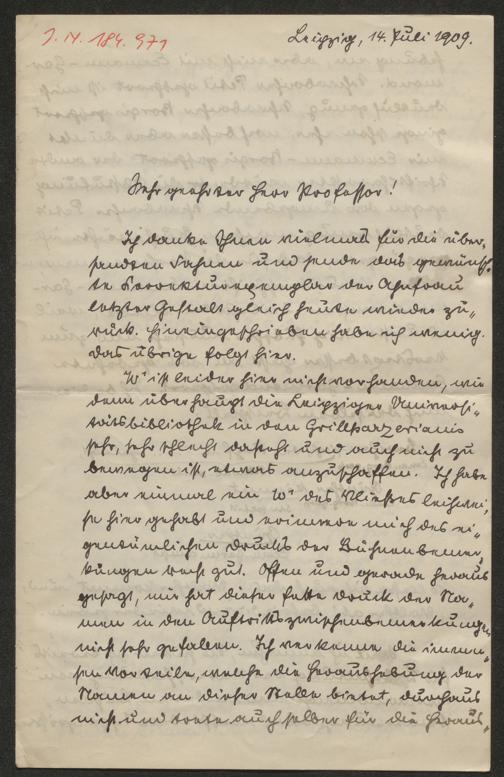 J. N. 184.971
Leipzig, 14. Juli 1909.
Sehr geehrter Herr Professor!
Ich danke Ihnen vielmals für die über-
sandten Fahnen und sende das gewünsch-
te Korrekturexemplar der Ahnfrau
letzter Gestalt gleich heute wieder zu-
rück. Hineingeschrieben habe ich wenig.
Das übrige folgt hier.
W¹ ist leider hier nicht vorhanden, wie
denn überhaupt die Leipziger Universi-
tätsbibliothek in den Grillparzerianis
sehr, sehr schlecht dasteht und auch nicht zu
bewegen ist, etwas anzuschaffen. Ich habe
aber einmal ein W¹ des Vließes leihwei-
se hier gehabt und erinnere mich des ei-
gentümlichen Drucks der Bühnenbemer-
kungen recht gut. Offen und gerade heraus
gesagt, mir hat dieser fette Druck der Na-
men in den Auftrittszwischenbemerkungen
nicht sehr gefallen. Ich verkenne die immen-
sen Vorteile, welche die Heraushebung der
Namen an dieser Stelle bietet, durchaus
nicht und trete auch selber für die Heraus-